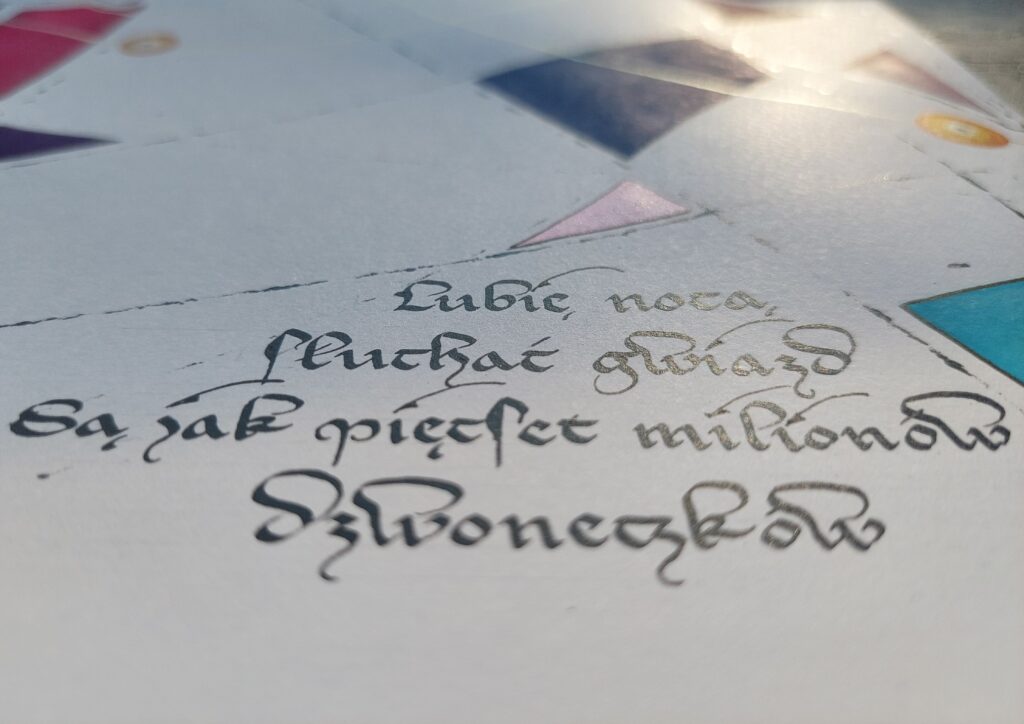 Lubię nocą
słuchać gwiazd
Są jak pięćset milionów
dzwoneczków